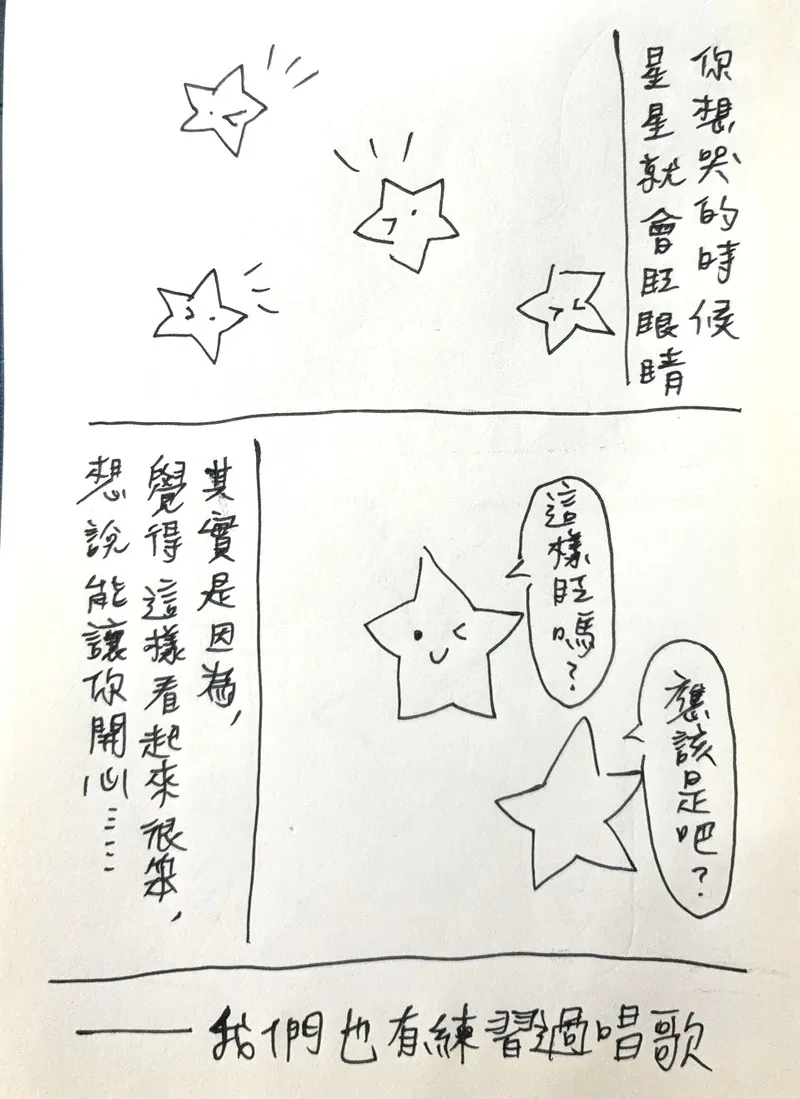 你想哭的時候
星星就會眨眼睛
這樣眨嗎?
應該是吧?
其實是因為,
覺得這樣看起來很笨,
想說能讓你開心……
——我們也有練習過唱歌